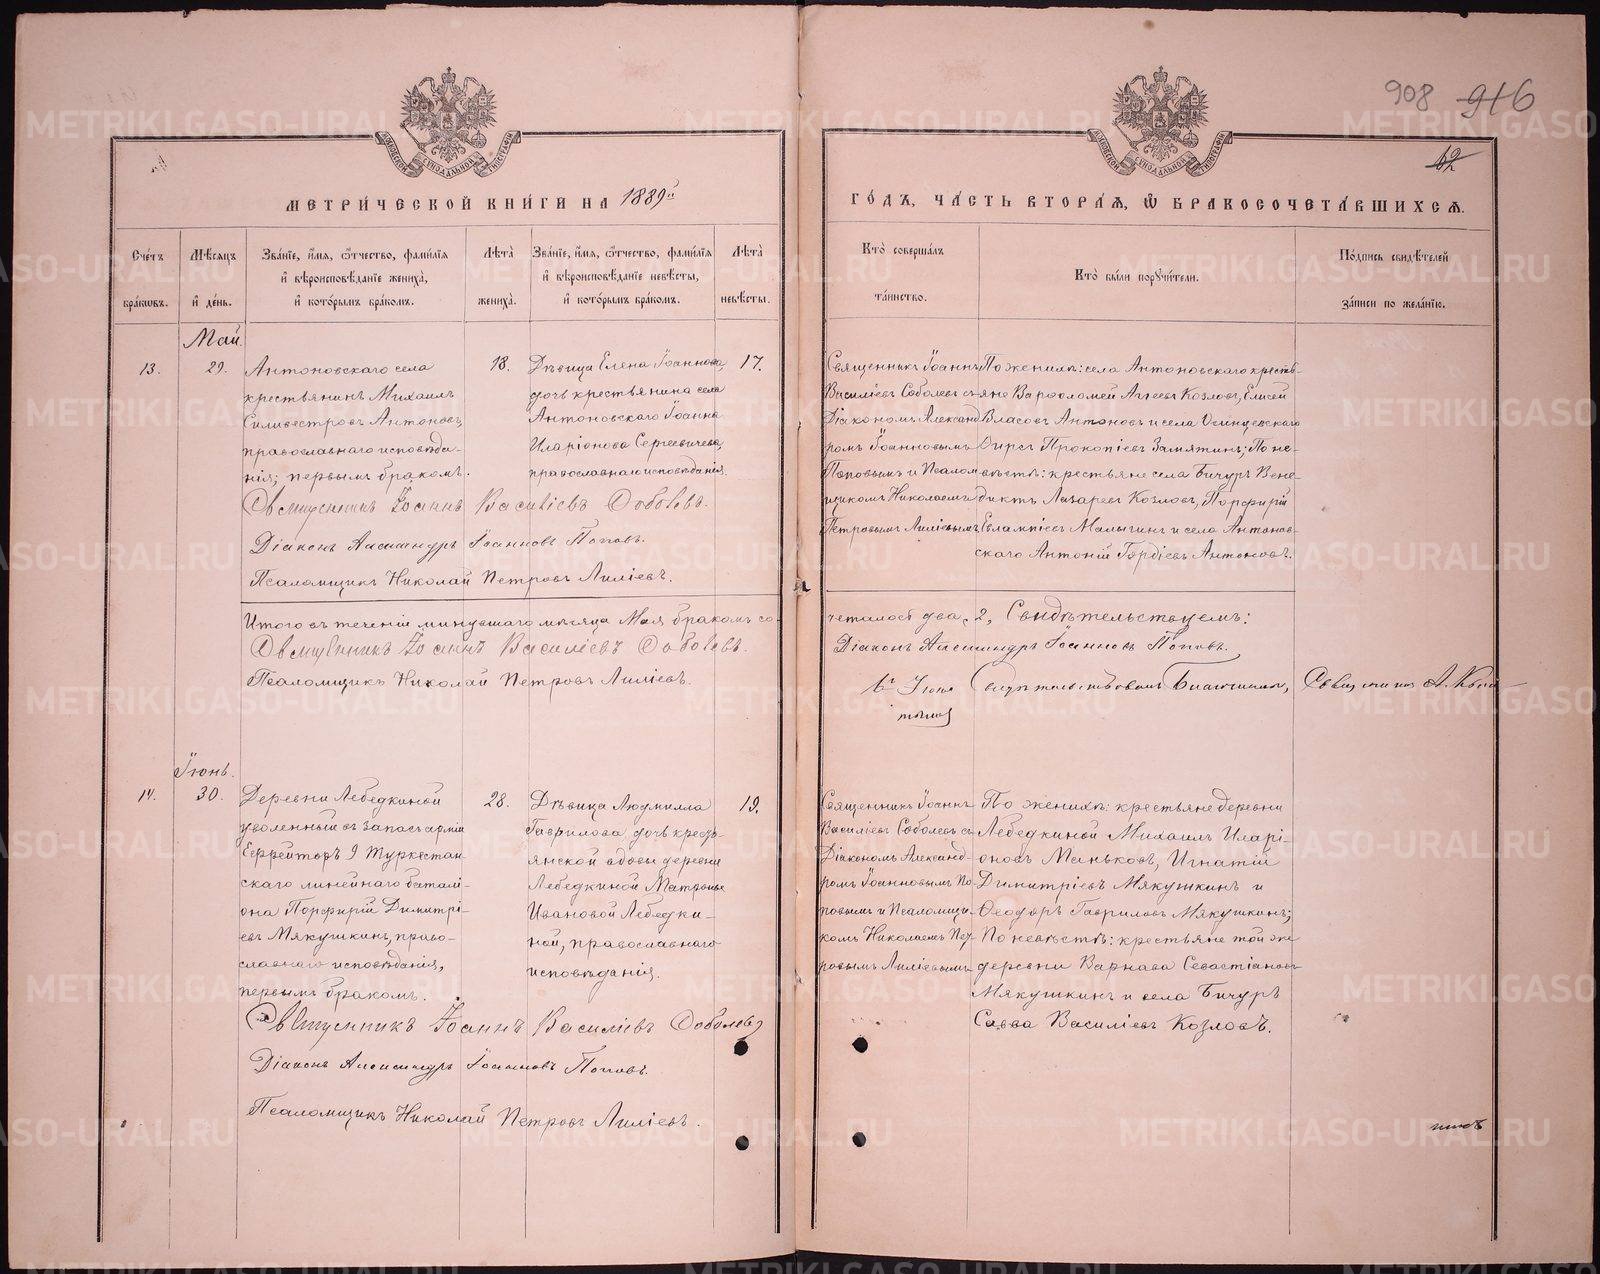 908 916
62
МЕТРИ́ЧЕСКОЙ КНИ́ГИ НА 1889й
ГО́ДЪ, ЧА́СТЬ ВТОРА́Ѧ, Ѡ БРАКОСОЧЕТА́ВШИХСѦ.
Сче́тъ бра́кѡвъ.
Мѣ́сѧцъ и҆ де́нь.
Зва́нїе, и҆́мѧ, ѻ҆́тчество, фами́лїѧ
и҆ вѣроисповѣ́данїе жениха̀,
и҆ кото́рымъ бра́комъ.
Лѣта̀ жениха̀.
Зва́нїе, и҆́мѧ, ѻ҆́тчество, фами́лїѧ
и҆ вѣроисповѣ́данїе невѣ́сты,
и҆ кото́рымъ бра́комъ.
Лѣта̀ невѣ́сты.
Кто̀ соверша́лъ та́инство.
Кто̀ бы́ли порꙋчи́тели.
По́дпись свидѣ́телей за́писи по жела́нїю.
Май.
13.
29.
Антоновскаго села
крестьянинъ Михаилъ
Силивестровъ Антоновъ,
православнаго исповѣда-
нія; первымъ бракомъ.
18.
Дѣвица Елена Іоаннова,
дочь крестьянина села
Антоновскаго Іоанна
Иларіонова Сергеевичева,
православнаго исповѣданія.
17.
Священникъ Іоаннъ
Василіевъ Соболевъ съ
Діакономъ Александ
ромъ Іоанновымъ
Поповымъ и Псалом
щикомъ Николаемъ
Петровымъ Лиліевымъ
По женихѣ: села Антоновскаго кресть-
яне Варѳоломей Агѣевъ Козловъ, Елисей
Власовъ Антоновъ и села Осинцевскаго
Фирсъ Прокопіевъ Замятинъ; По не-
вѣстѣ: крестьяне села Бичуръ Вене-
диктъ Лазаревъ Козловъ, Порфирій
Евлампіевъ Малыгинъ и села Антонов-
скаго Антоній Гордіевъ Антоновъ.
Священникъ Іоаннъ Василіевъ Соболевъ.
Діаконъ Александръ Іоанновъ Поповъ.
Псаломщикъ Николай Петровъ Лиліевъ.
Итого въ теченіи минувшаго мѣсяца Мая бракомъ со-
четалось два, 2, Свидѣтельствуемъ:
Священникъ Іоаннъ Василіевъ Соболевъ.
Діаконъ Александръ Іоанновъ Поповъ.
Псаломщикъ Николай Петровъ Лиліевъ.
Свидѣтельствовалъ Благочинный, Священникъ А.
Іюнь.
14.
30.
Деревни Лебедкиной
уволенный въ запасъ арміи
Ефрейторъ 9 Туркестан
скаго линейнаго баталі-
она Порфирій Димитрі-
евъ Мякушкинъ, право-
славнаго исповѣданія,
первымъ бракомъ.
28.
Дѣвица Людмилла
Гаврилова, дочь кресть-
янской вдовы деревни
Лебедкиной Матроны
Ивановой Лебедки-
ной, православнаго
исповѣданія.
19.
Священникъ Іоаннъ
Василіевъ Соболевъ съ
Діакономъ Александ-
ромъ Іоанновымъ По-
повымъ и Псаломщи-
комъ Николаемъ Пет-
ровымъ Лиліевымъ
По женихѣ: крестьяне деревни
Лебедкиной Михаилъ Иларі-
оновъ Маньковъ, Игнатій
Димитріевъ Мякушкинъ и
Ѳеодоръ Гавриловъ Мякушкинъ;
По невѣстѣ: крестьяне той же
деревни Варнава Севастіановъ
Мякушкинъ и села Бичуръ
Савва Василіевъ Козловъ.
Священникъ Іоаннъ Василіевъ Соболевъ
Діаконъ Александръ Іоанновъ Поповъ.
Псаломщикъ Николай Петровъ Лиліевъ.